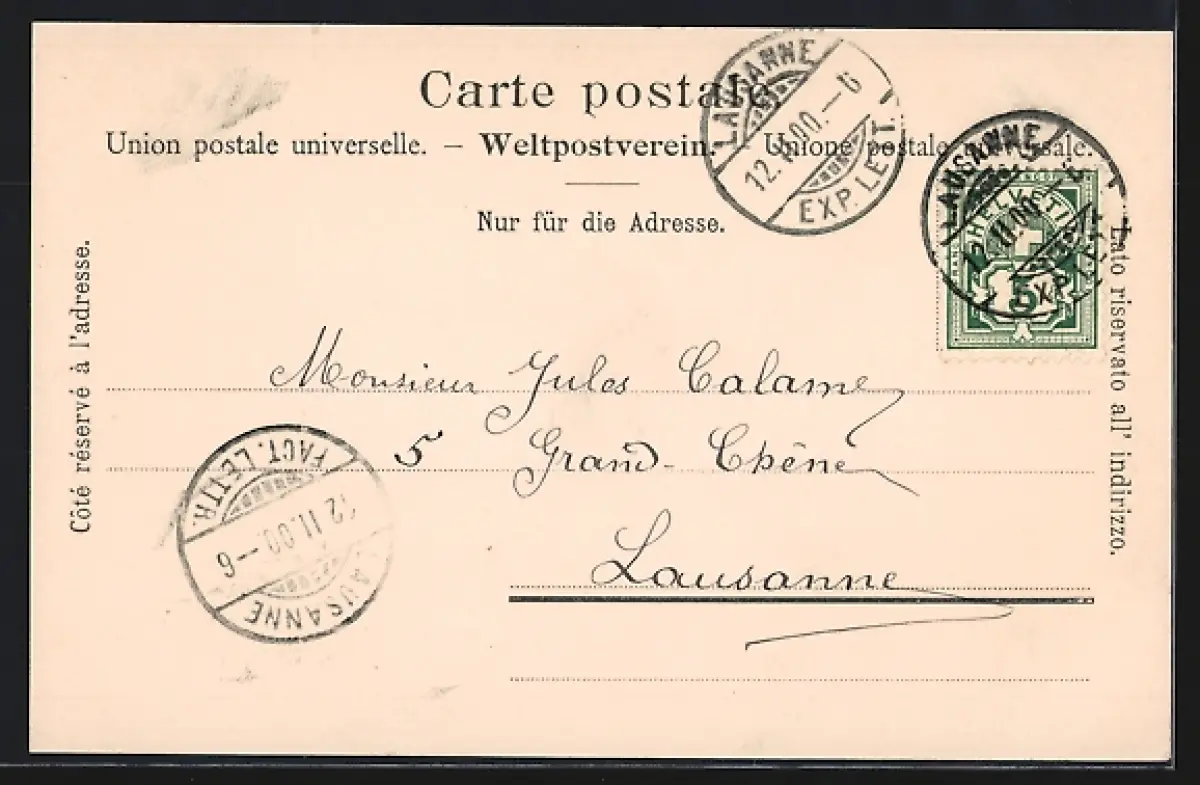 Carte postale.
Union postale universelle. – Weltpostverein. – Unione postale universale.
Nur für die Adresse.
Côté réservé à l'adresse.
Lato riservato all' indirizzo.
LAUSANNE
12. II.00.–6
EXP. LETT.
LAUSANNE
12. II.00.–6
EXP. LETT.
HELVETIA
FRANCO
5
Monsieur Jules Calame
5 Grand-Chêne
Lausanne
LAUSANNE
12 II.00.–6
FACT. LETTR.